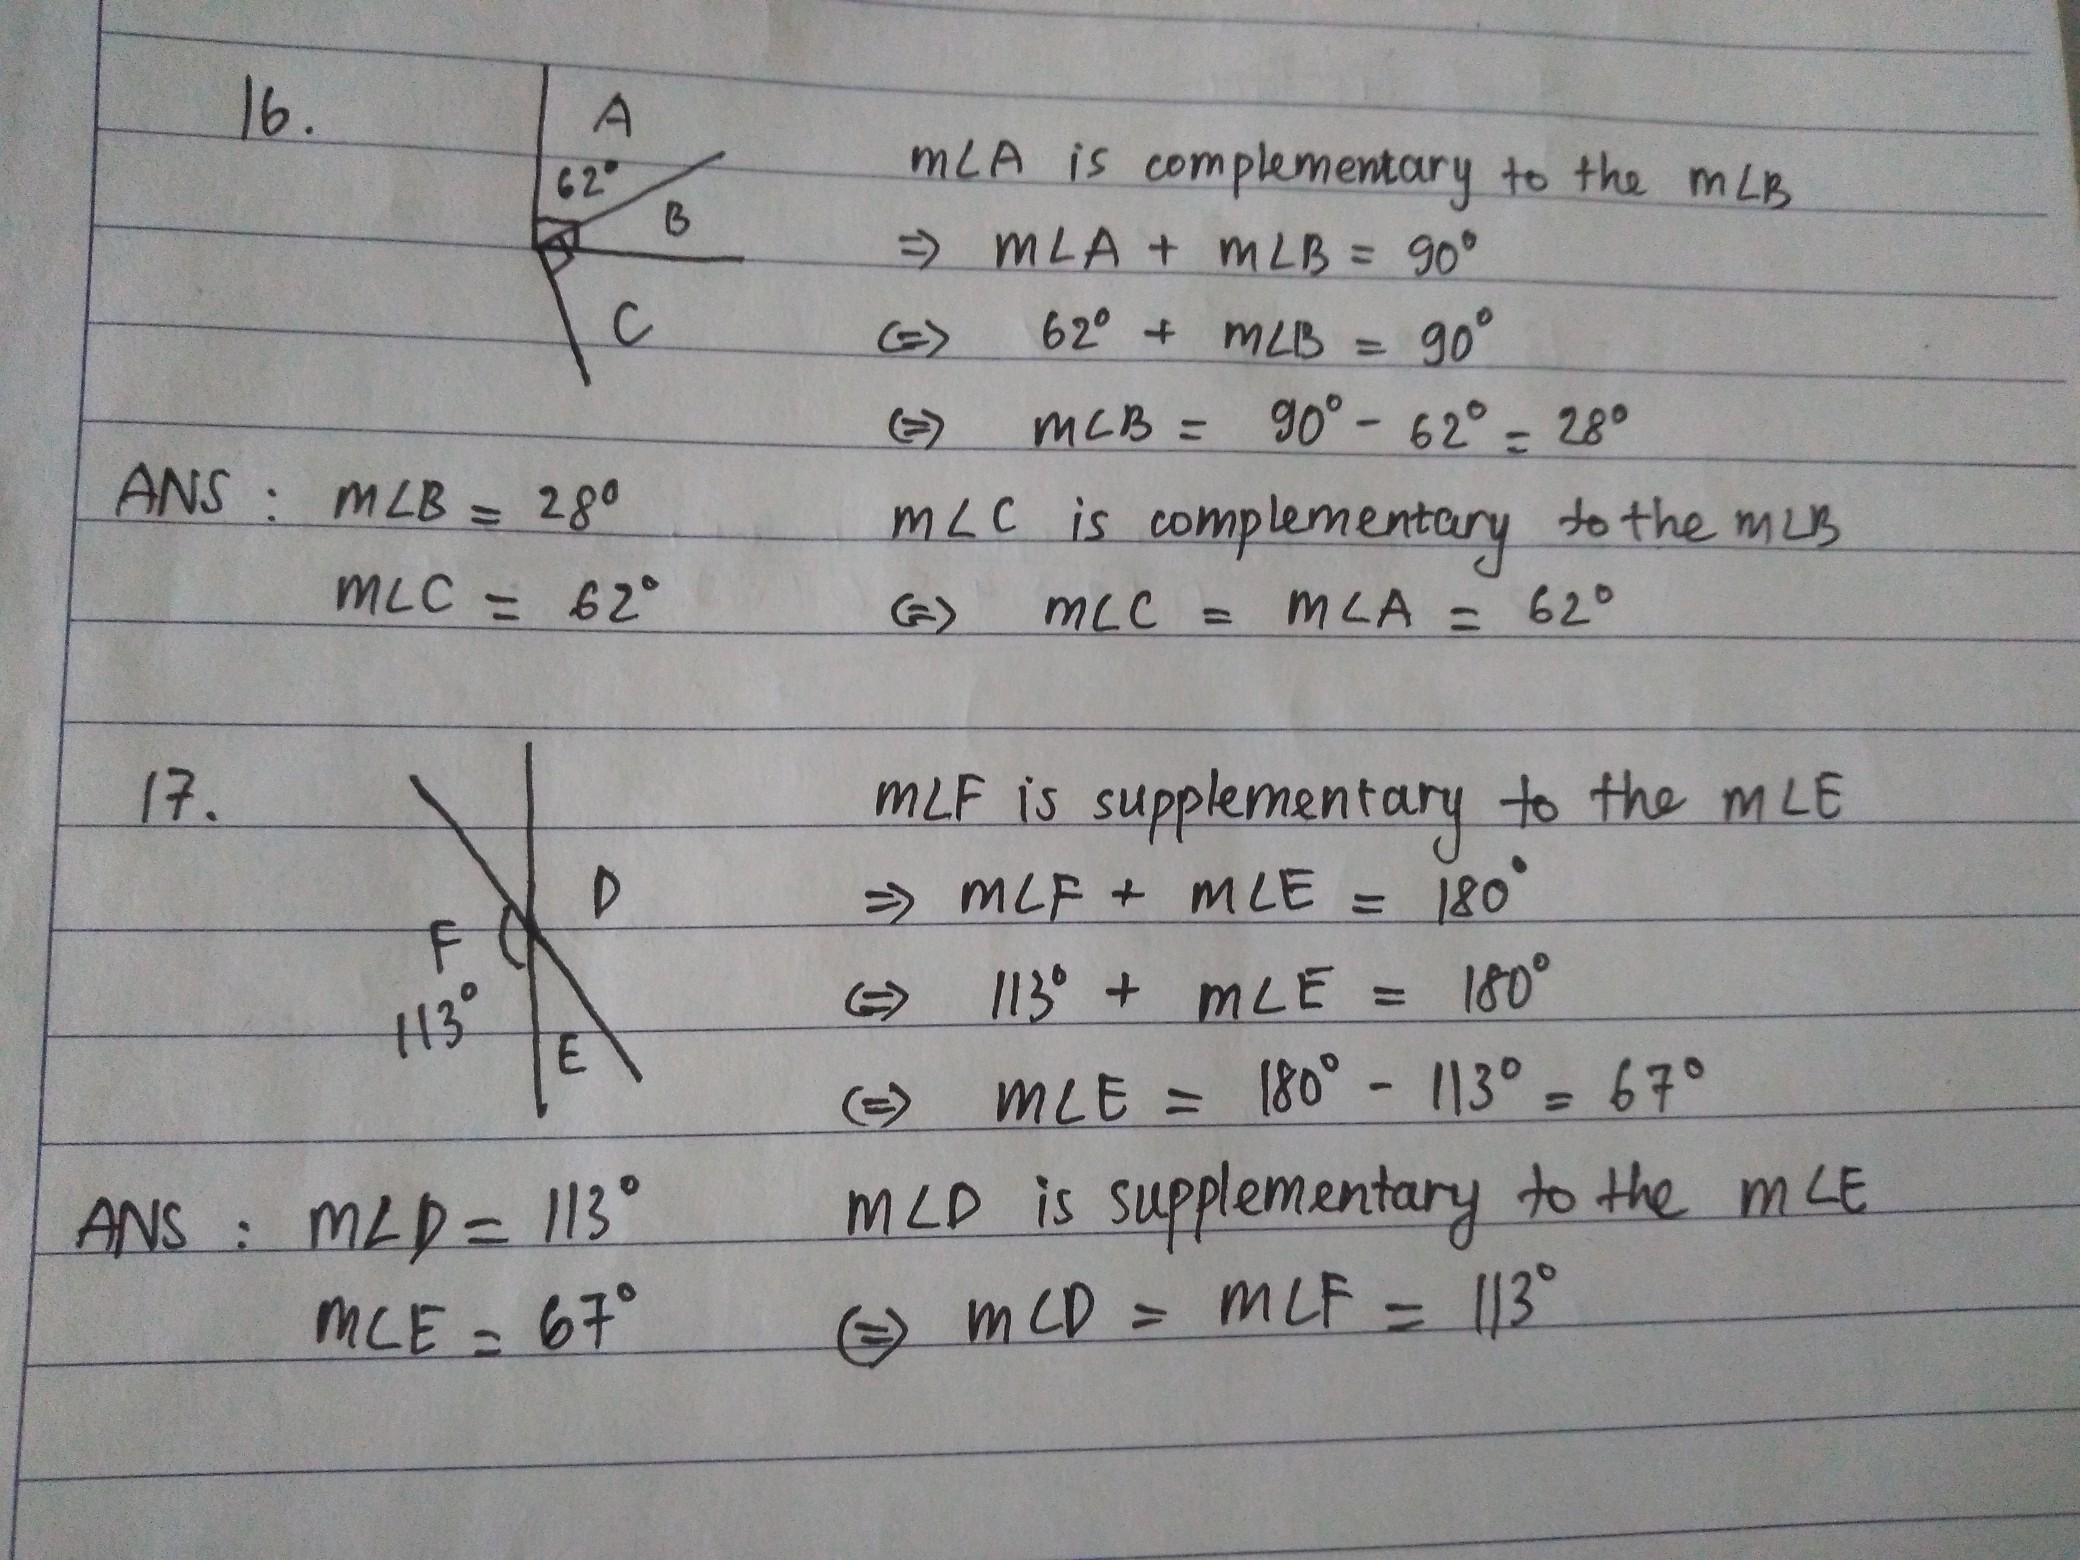 16.
A
62°
B
C
m∠A is complementary to the m∠B
=> m∠A + m∠B = 90°
<=> 62° + m∠B = 90°
<=> m∠B = 90° - 62° = 28°
ANS : m∠B = 28°
m∠C = 62°
m∠C is complementary to the m∠B
<=> m∠C = m∠A = 62°
17.
D
F
113°
E
m∠F is supplementary to the m∠E
=> m∠F + m∠E = 180°
<=> 113° + m∠E = 180°
<=> m∠E = 180° - 113° = 67°
ANS : m∠D = 113°
m∠E = 67°
m∠D is supplementary to the m∠E
<=> m∠D = m∠F = 113°